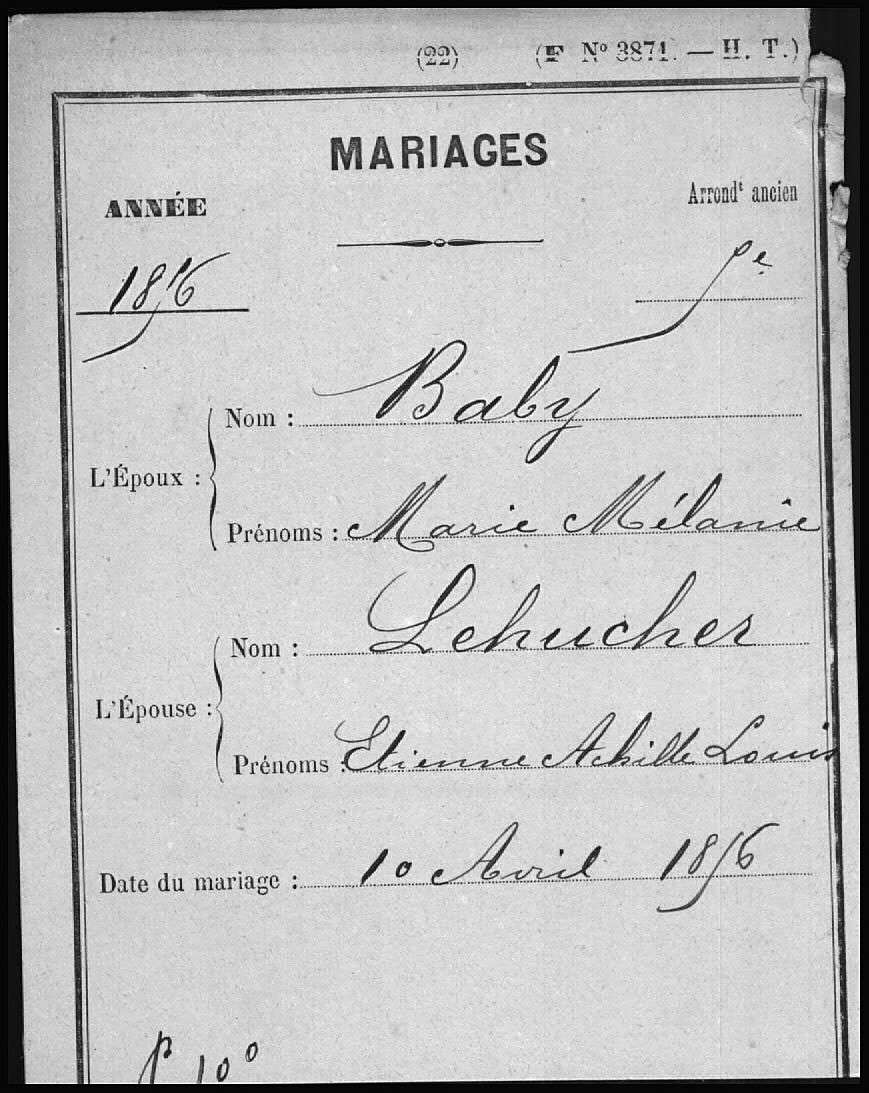 (22) (F N° 3871. — H. T.)
MARIAGES
ANNÉE
Arrondt ancien
1856
5e
Baby
Nom :
L'Époux :
Prénoms : Marie Mélanie
Lehucher
Nom :
L'Épouse :
Prénoms : Etienne Achille Louis
Date du mariage : 10 Avril 1856
10°